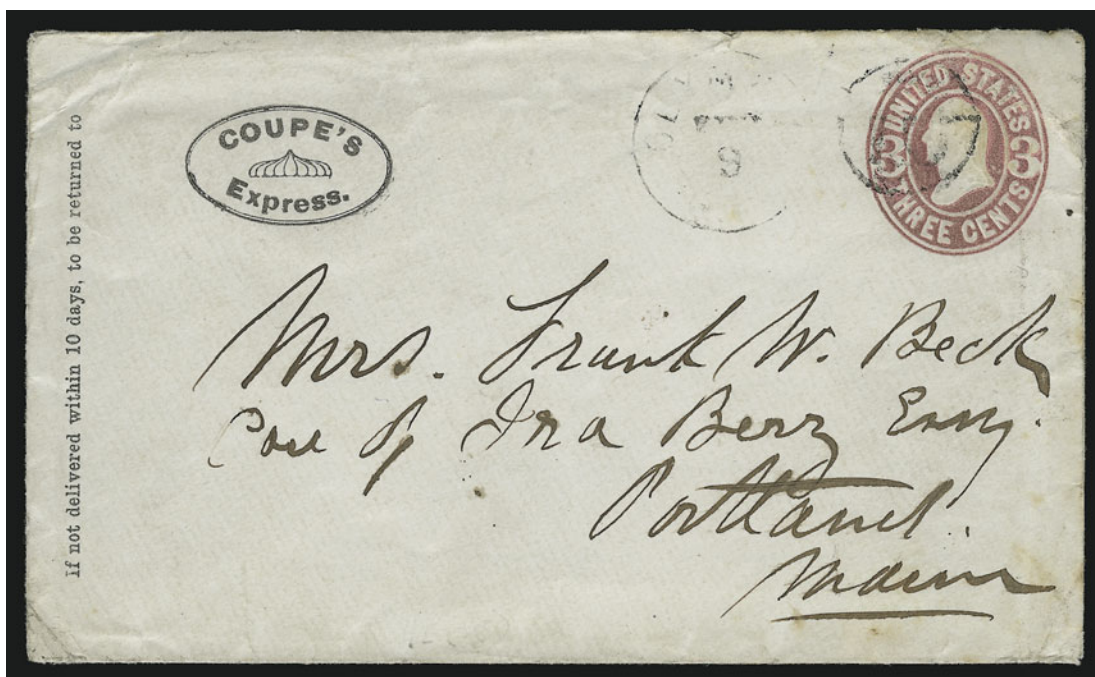 If not delivered within 10 days, to be returned to
COUPE'S
Express.
OLYM
9
UNITED STATES
3 3
THREE CENTS
Mrs. Frank W. Beck
Care of Ira Berry Esqr.
Portland.
Maine